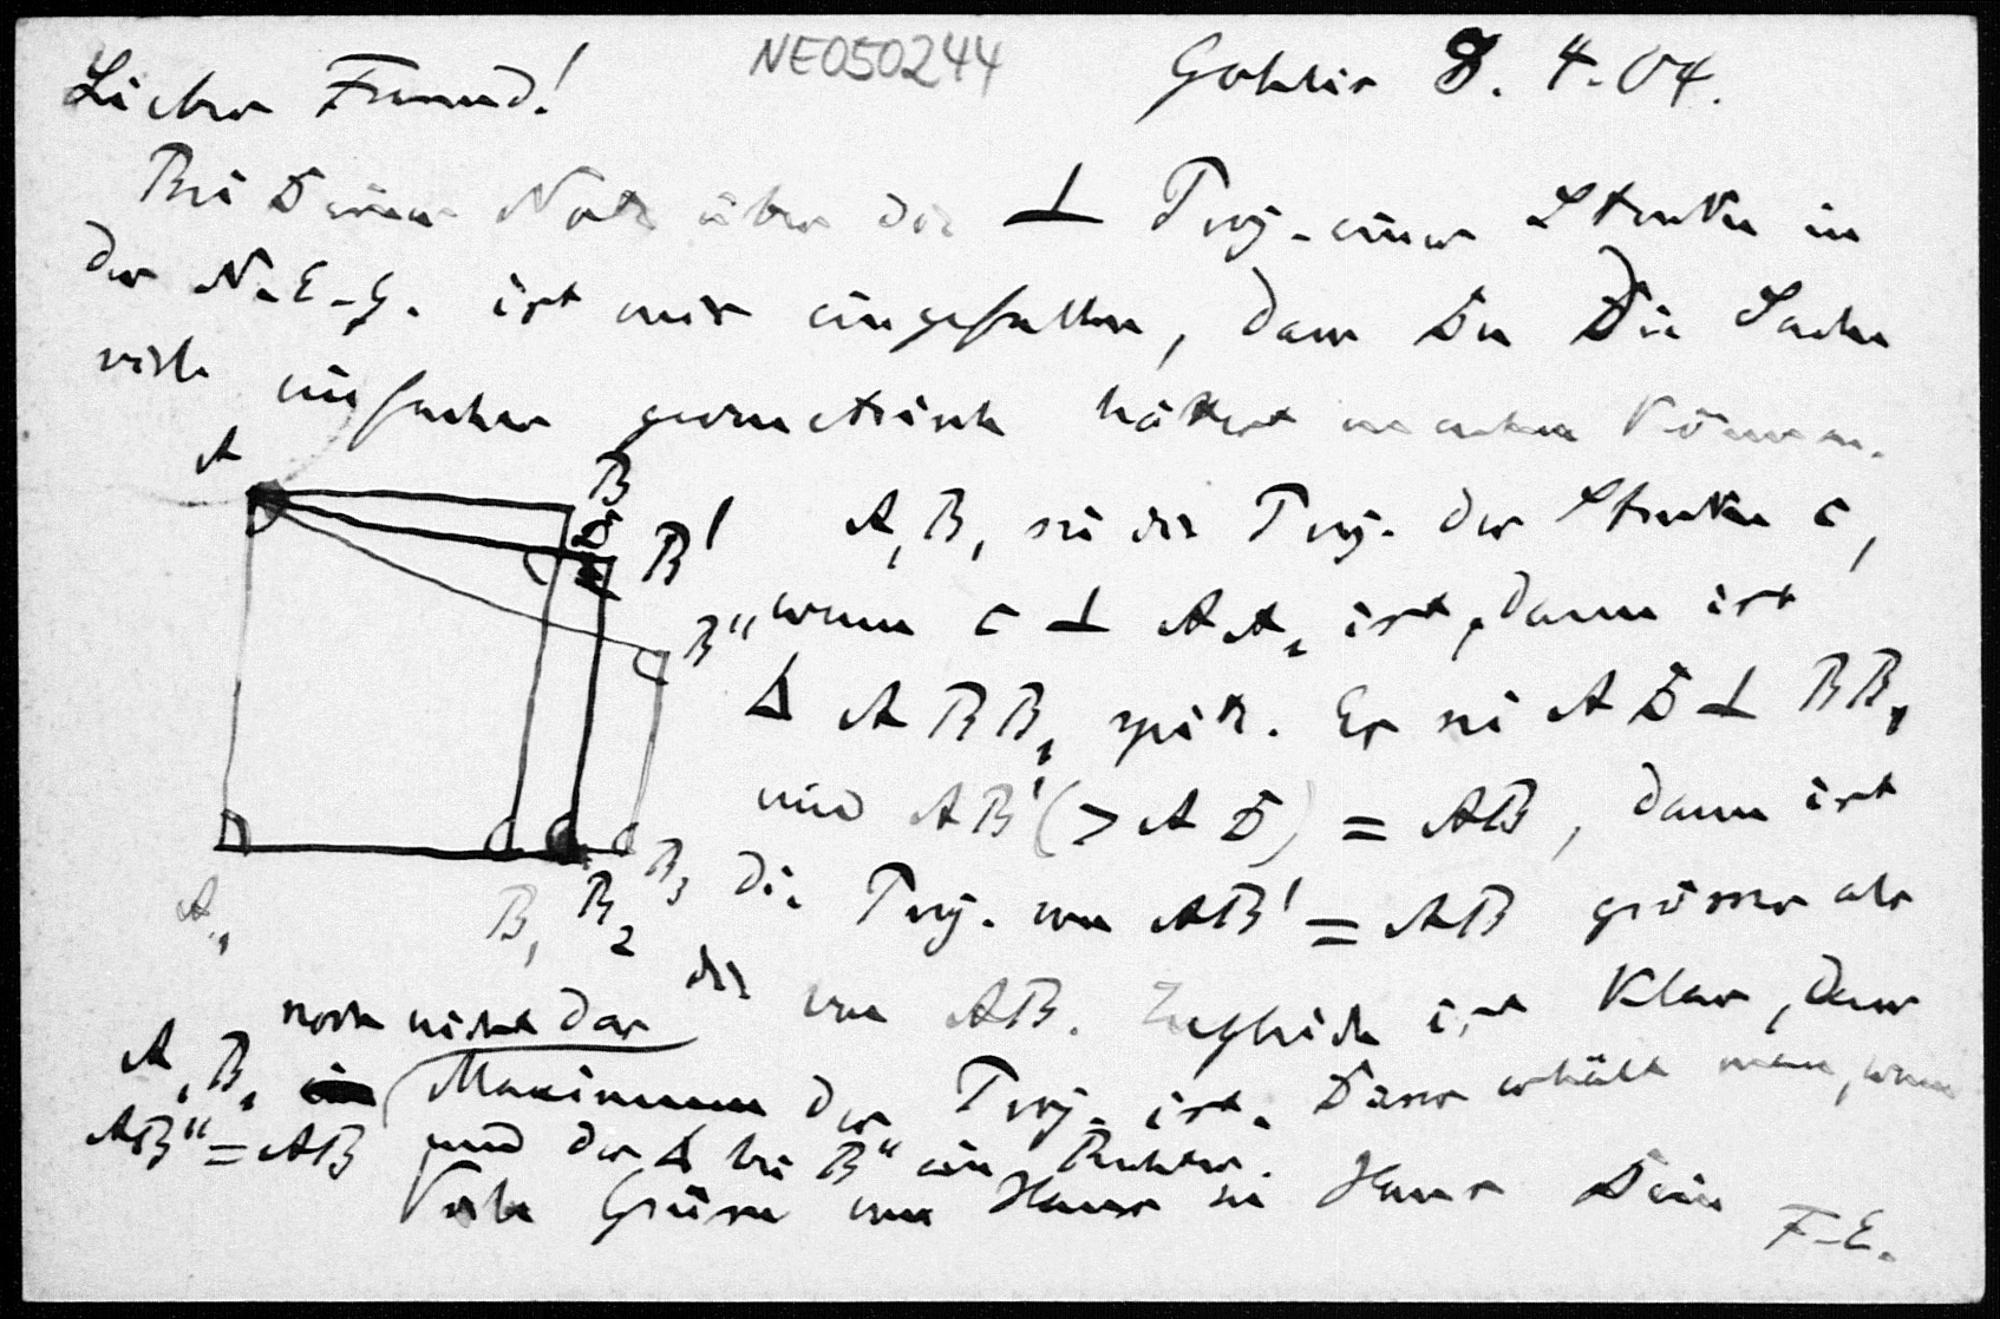 NE050244
Gohlis 8. 4. 04.
Lieber Freund!
Bei Deiner Notiz über die ⊥ Proj. einer Strecke in
der N.-E.-G. ist mir eingefallen, dass Du Die Sache
viel einfacher geometrisch hättest machen können.
A
B
D
B'
B"
A₁
B₁
B₂
B₃
A₁B₁ sei die Proj. der Strecke c,
wenn c ⊥ AA₁ ist, dann ist
∆ ABB₁ spitz. Es sei AD ⊥ BB₁
und AB' (> AD) = AB, dann ist
die Proj. von AB' = AB grösser als
die von AB. Zugleich ist klar, dass
noch nicht das
A₁B₁ Maximum der Proj. ist. Dieses erhält man, wenn
AB" = AB und der ∆ bei B" ein Rechter.
Viele Grüsse von Haus zu Haus Dein
F.E.